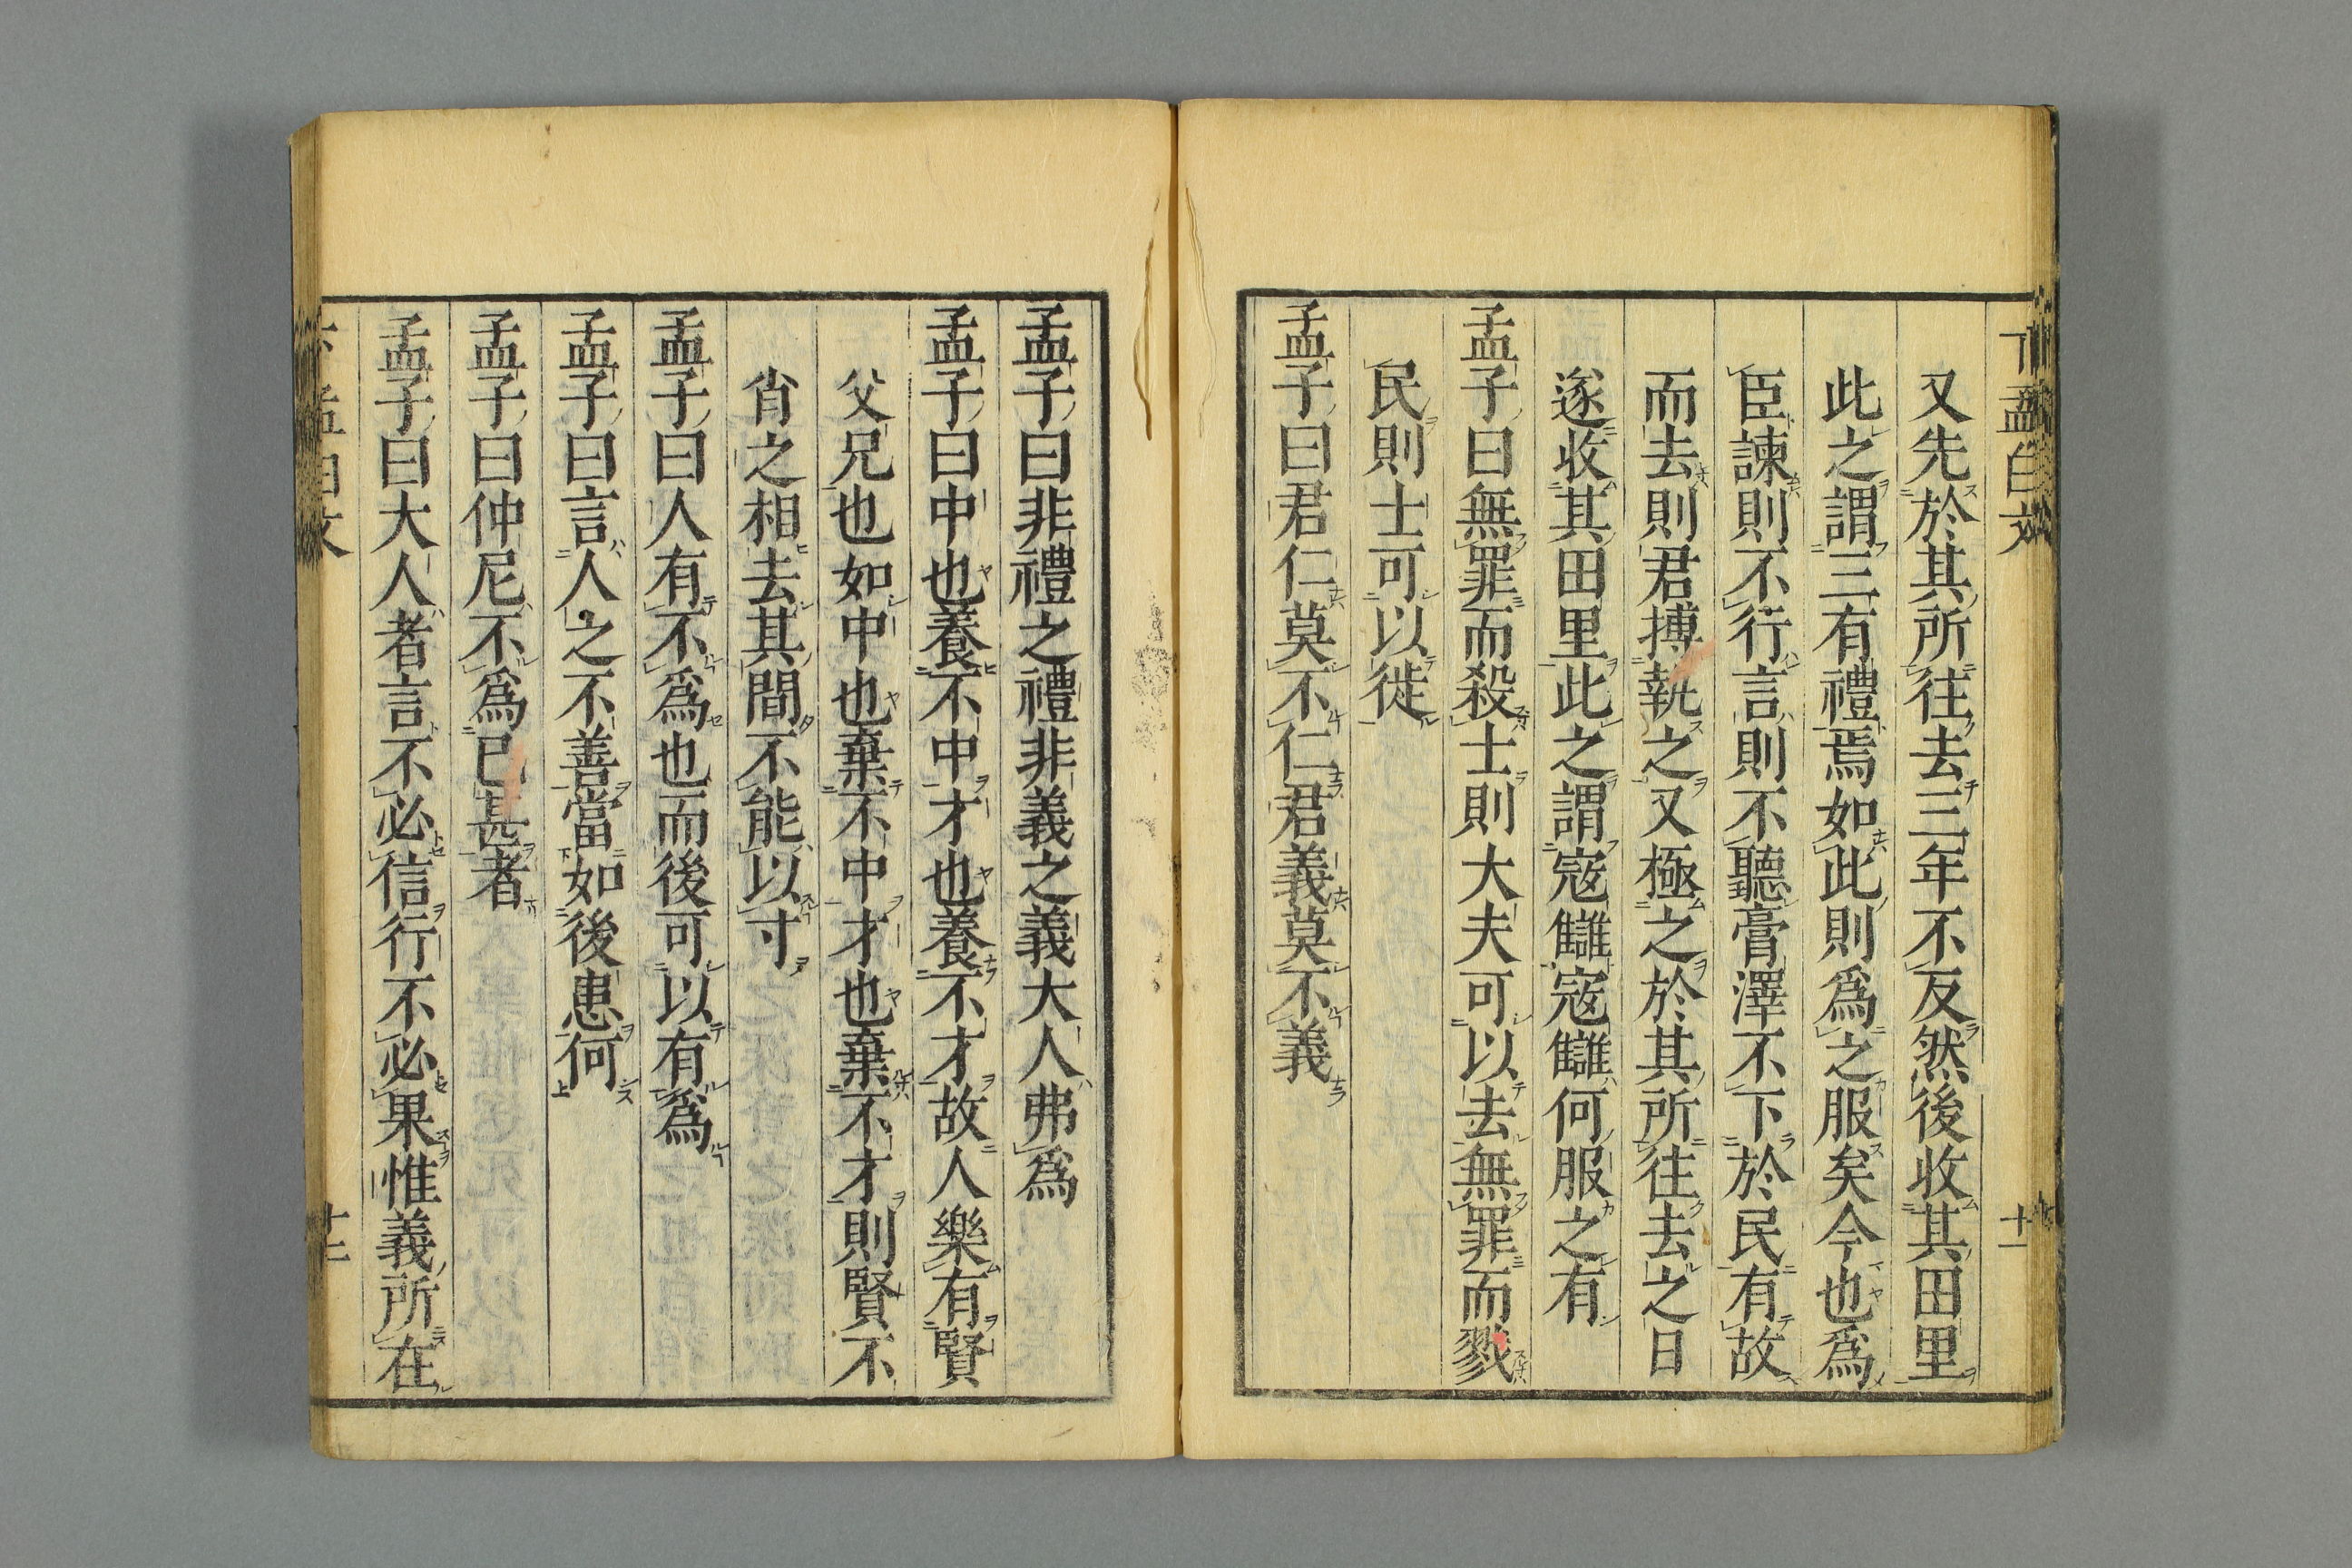 又先於其所往去三年不反然後收其田里
此之謂三有禮焉如此則爲之服矣今也爲
臣諫則不行言則不聽膏澤不下於民有故
而去則君搏執之又極之於其所往去之日
遂收其田里此之謂寇讎寇讎何服之有
孟子曰無罪而殺士則大夫可以去無罪而戮
民則士可以徙
孟子曰君仁莫不仁君義莫不義
十一
孟子曰非禮之禮非義之義大人弗爲
孟子曰中也養不中才也養不才故人樂有賢
父兄也如中也棄不中才也棄不才則賢不
肖之相去其間不能以寸
孟子曰人有不爲也而後可以有爲
孟子曰言人之不善當如後患何
孟子曰仲尼不爲已甚者
孟子曰大人者言不必信行不必果惟義所在
十二